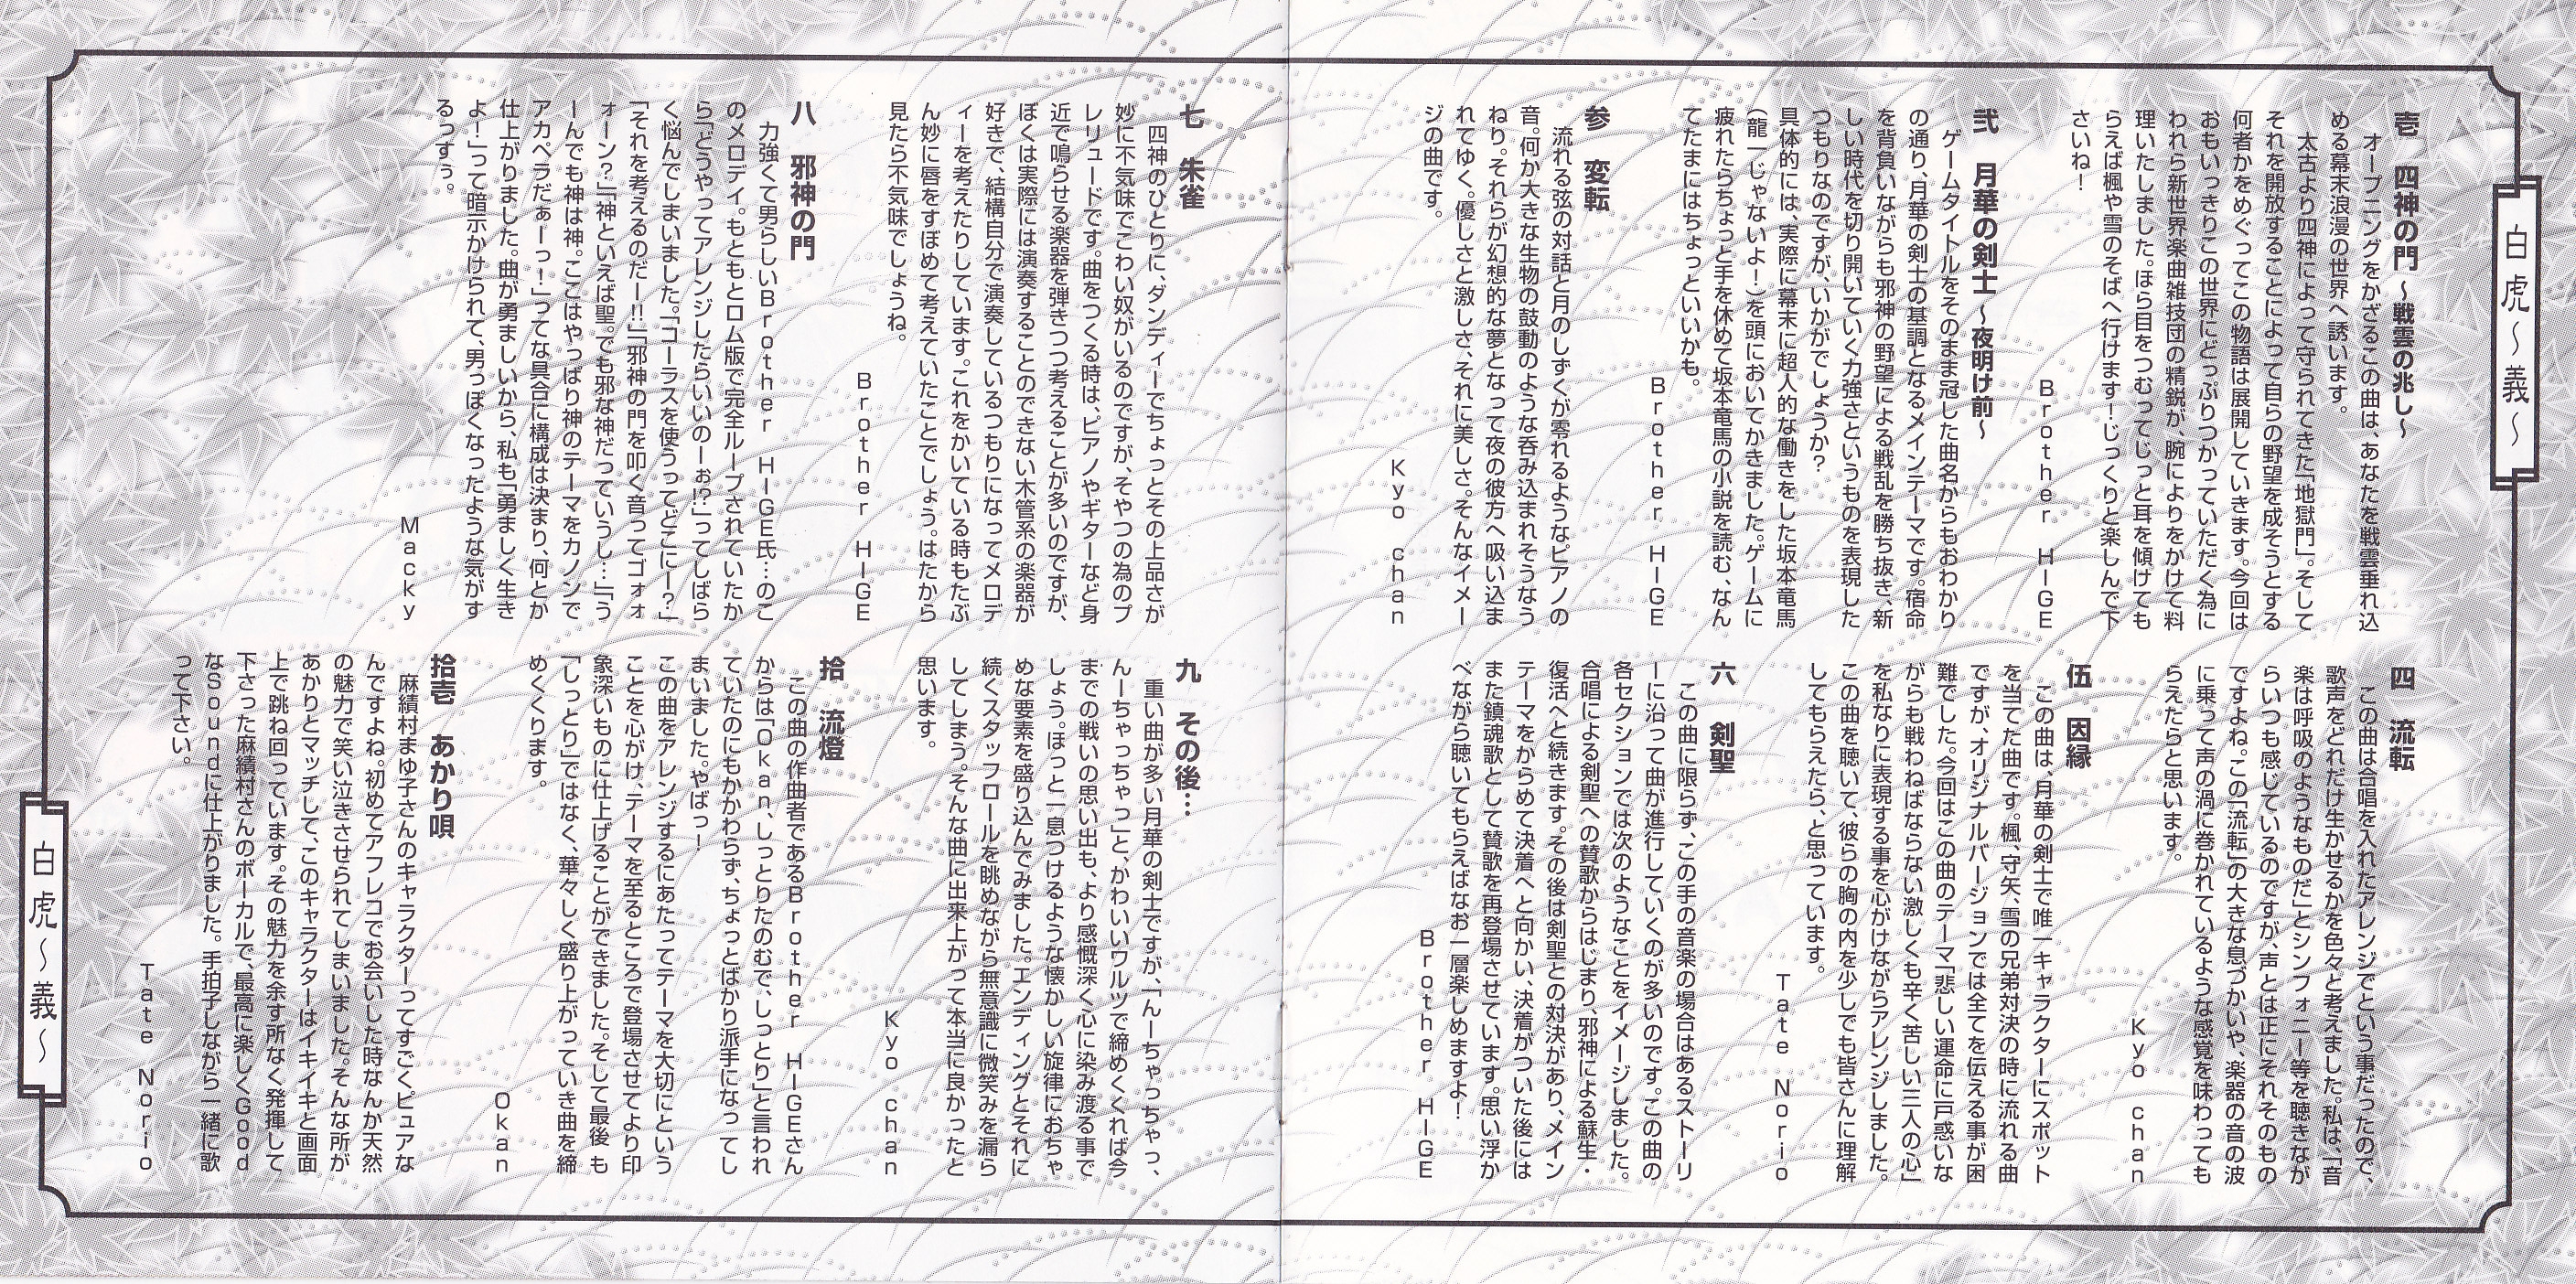 白虎～義～
壱 四神の門 ～戦雲の兆し～
オープニングをかざるこの曲は、あなたを戦雲垂れ込
める幕末浪漫の世界へ誘います。
太古より四神によって守られてきた「地獄門」。そして
それを開放することによって自らの野望を成そうとする
何者かをめぐってこの物語は展開していきます。今回は
おもいっきりこの世界にどっぷりつかっていただく為に
われら新世界楽曲雑技団の精鋭が、腕によりをかけて料
理いたしました。ほら目をつむってじっと耳を傾けても
らえば楓や雪のそばへ行けます!じっくりと楽しんで下
さいね!
Brother HIGE
弐 月華の剣士 ～夜明け前～
ゲームタイトルをそのまま冠した曲名からもおわかり
の通り、月華の剣士の基調となるメインテーマです。宿命
を背負いながらも邪神の野望による戦乱を勝ち抜き、新
しい時代を切り開いていく力強さというものを表現した
つもりなのですが、いかがでしょうか?
具体的には、実際に幕末に超人的な働きをした坂本竜馬
(龍一じゃないよ!)を頭においてかきました。ゲームに
疲れたらちょっと手を休めて坂本竜馬の小説を読む、なん
てたまにはちょっといいかも。
Brother HIGE
参 変転
流れる弦の対話と月のしずくが零れるようなピアノの
音。何か大きな生物の鼓動のような呑み込まれそうなう
ねり。それらが幻想的な夢となって夜の彼方へ吸い込ま
れてゆく。優しさと激しさ、それに美しさ。そんなイメー
ジの曲です。
Kyo chan
四 流転
この曲は合唱を入れたアレンジでという事だったので、
歌声をどれだけ生かせるかを色々と考えました。私は、「音
楽は呼吸のようなものだ」とシンフォニー等を聴きなが
らいつも感じているのですが、声とは正にそれそのもの
ですよね。この「流転」の大きな息づかいや、楽器の音の波
に乗って声の渦に巻かれているような感覚を味わっても
らえたらと思います。
Kyo chan
伍 因縁
この曲は、月華の剣士で唯一キャラクターにスポット
を当てた曲です。楓、守矢、雪の兄弟対決の時に流れる曲
ですが、オリジナルバージョンでは全てを伝える事が困
難でした。今回はこの曲のテーマ「悲しい運命に戸惑いな
がらも戦わねばならない激しくも辛く苦しい三人の心」
を私なりに表現する事を心がけながらアレンジしました。
この曲を聴いて、彼らの胸の内を少しでも皆さんに理解
してもらえたら、と思っています。
Tate Norio
六 剣聖
この曲に限らず、この手の音楽の場合はあるストーリ
ーに沿って曲が進行していくのが多いのです。この曲の
各セクションでは次のようなことをイメージしました。
合唱による剣聖への賛歌からはじまり、邪神による蘇生・
復活へと続きます。その後は剣聖との対決があり、メイン
テーマをからめて決着へと向かい、決着がついた後には
また鎮魂歌として賛歌を再登場させています。思い浮か
べながら聴いてもらえばなお一層楽しめますよ!
Brother HIGE
七 朱雀
四神のひとりに、ダンディーでちょっとその上品さが
妙に不気味でこわい奴がいるのですが、そやつの為のプ
レリュードです。曲をつくる時は、ピアノやギターなど身
近で鳴らせる楽器を弾きつつ考えることが多いのですが、
ぼくは実際には演奏することのできない木管系の楽器が
好きで、結構自分で演奏しているつもりになってメロデ
ィーを考えたりしています。これをかいている時もたぶ
ん妙に唇をすぼめて考えていたことでしょう。はたから
見たら不気味でしょうね。
Brother HIGE
八 邪神の門
力強くて男らしいBrother HIGE氏…のこ
のメロディ。もともとロム版で完全ループされていたか
ら「どうやってアレンジしたらいいのーぉ!?」ってしばら
く悩んでしまいました。「コーラスを使うってどこにー?」
「それを考えるのだー!!」「邪神の門を叩く音ってゴォォ
ォーン?」「神といえば聖。でも邪な神だっていうし…」「う
ーんでも神は神。ここはやっぱり神のテーマをカノンで
アカペラだぁーっ!」ってな具合に構成は決まり、何とか
仕上がりました。曲が勇ましいから、私も「勇ましく生き
よ!」って暗示かけられて、男っぽくなったような気がす
るっすぅ。
Macky
九 その後…
重い曲が多い月華の剣士ですが、「んーちゃっちゃっ、
んーちゃっちゃっ」と、かわいいワルツで締めくくれば今
までの戦いの思い出も、より感慨深く心に染み渡る事で
しょう。ほっと一息つけるような懐かしい旋律におちゃ
めな要素を盛り込んでみました。エンディングとそれに
続くスタッフロールを眺めながら無意識に微笑みを漏ら
してしまう。そんな曲に出来上がって本当に良かったと
思います。
Kyo chan
拾 流燈
この曲の作曲者であるBrother HIGEさん
からは「Okan、しっとりたのむで、しっとり」と言われ
ていたのにもかかわらず、ちょっとばかり派手になってし
まいました。やばっ!
この曲をアレンジするにあたってテーマを大切にという
ことを心がけ、テーマを至るところで登場させてより印
象深いものに仕上げることができました。そして最後も
「しっとり」ではなく、華々しく盛り上がっていき曲を締
めくくります。
Okan
拾壱 あかり唄
麻績村まゆ子さんのキャラクターってすごくピュアな
んですよね。初めてアフレコでお会いした時なんか天然
の魅力で笑い泣きさせられてしまいました。そんな所が
あかりとマッチして、このキャラクターはイキイキと画面
上で跳ね回っています。その魅力を余す所なく発揮して
下さった麻績村さんのボーカルで、最高に楽しくGood
なSoundに仕上がりました。手拍子しながら一緒に歌
って下さい。
Tate Norio
白虎～義～